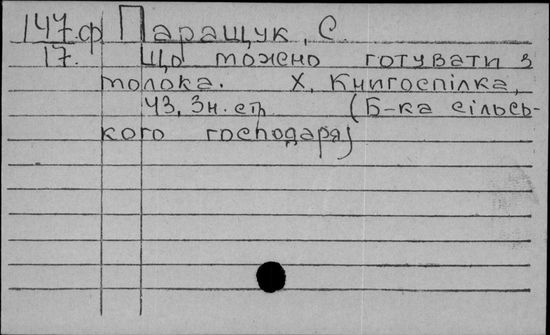 147.ф Паращук, С.
17. Що можно готувати з
молока. Х, Книгоспілка,
43, 3н. ст. (Б-ка сільсь-
кого господаря)